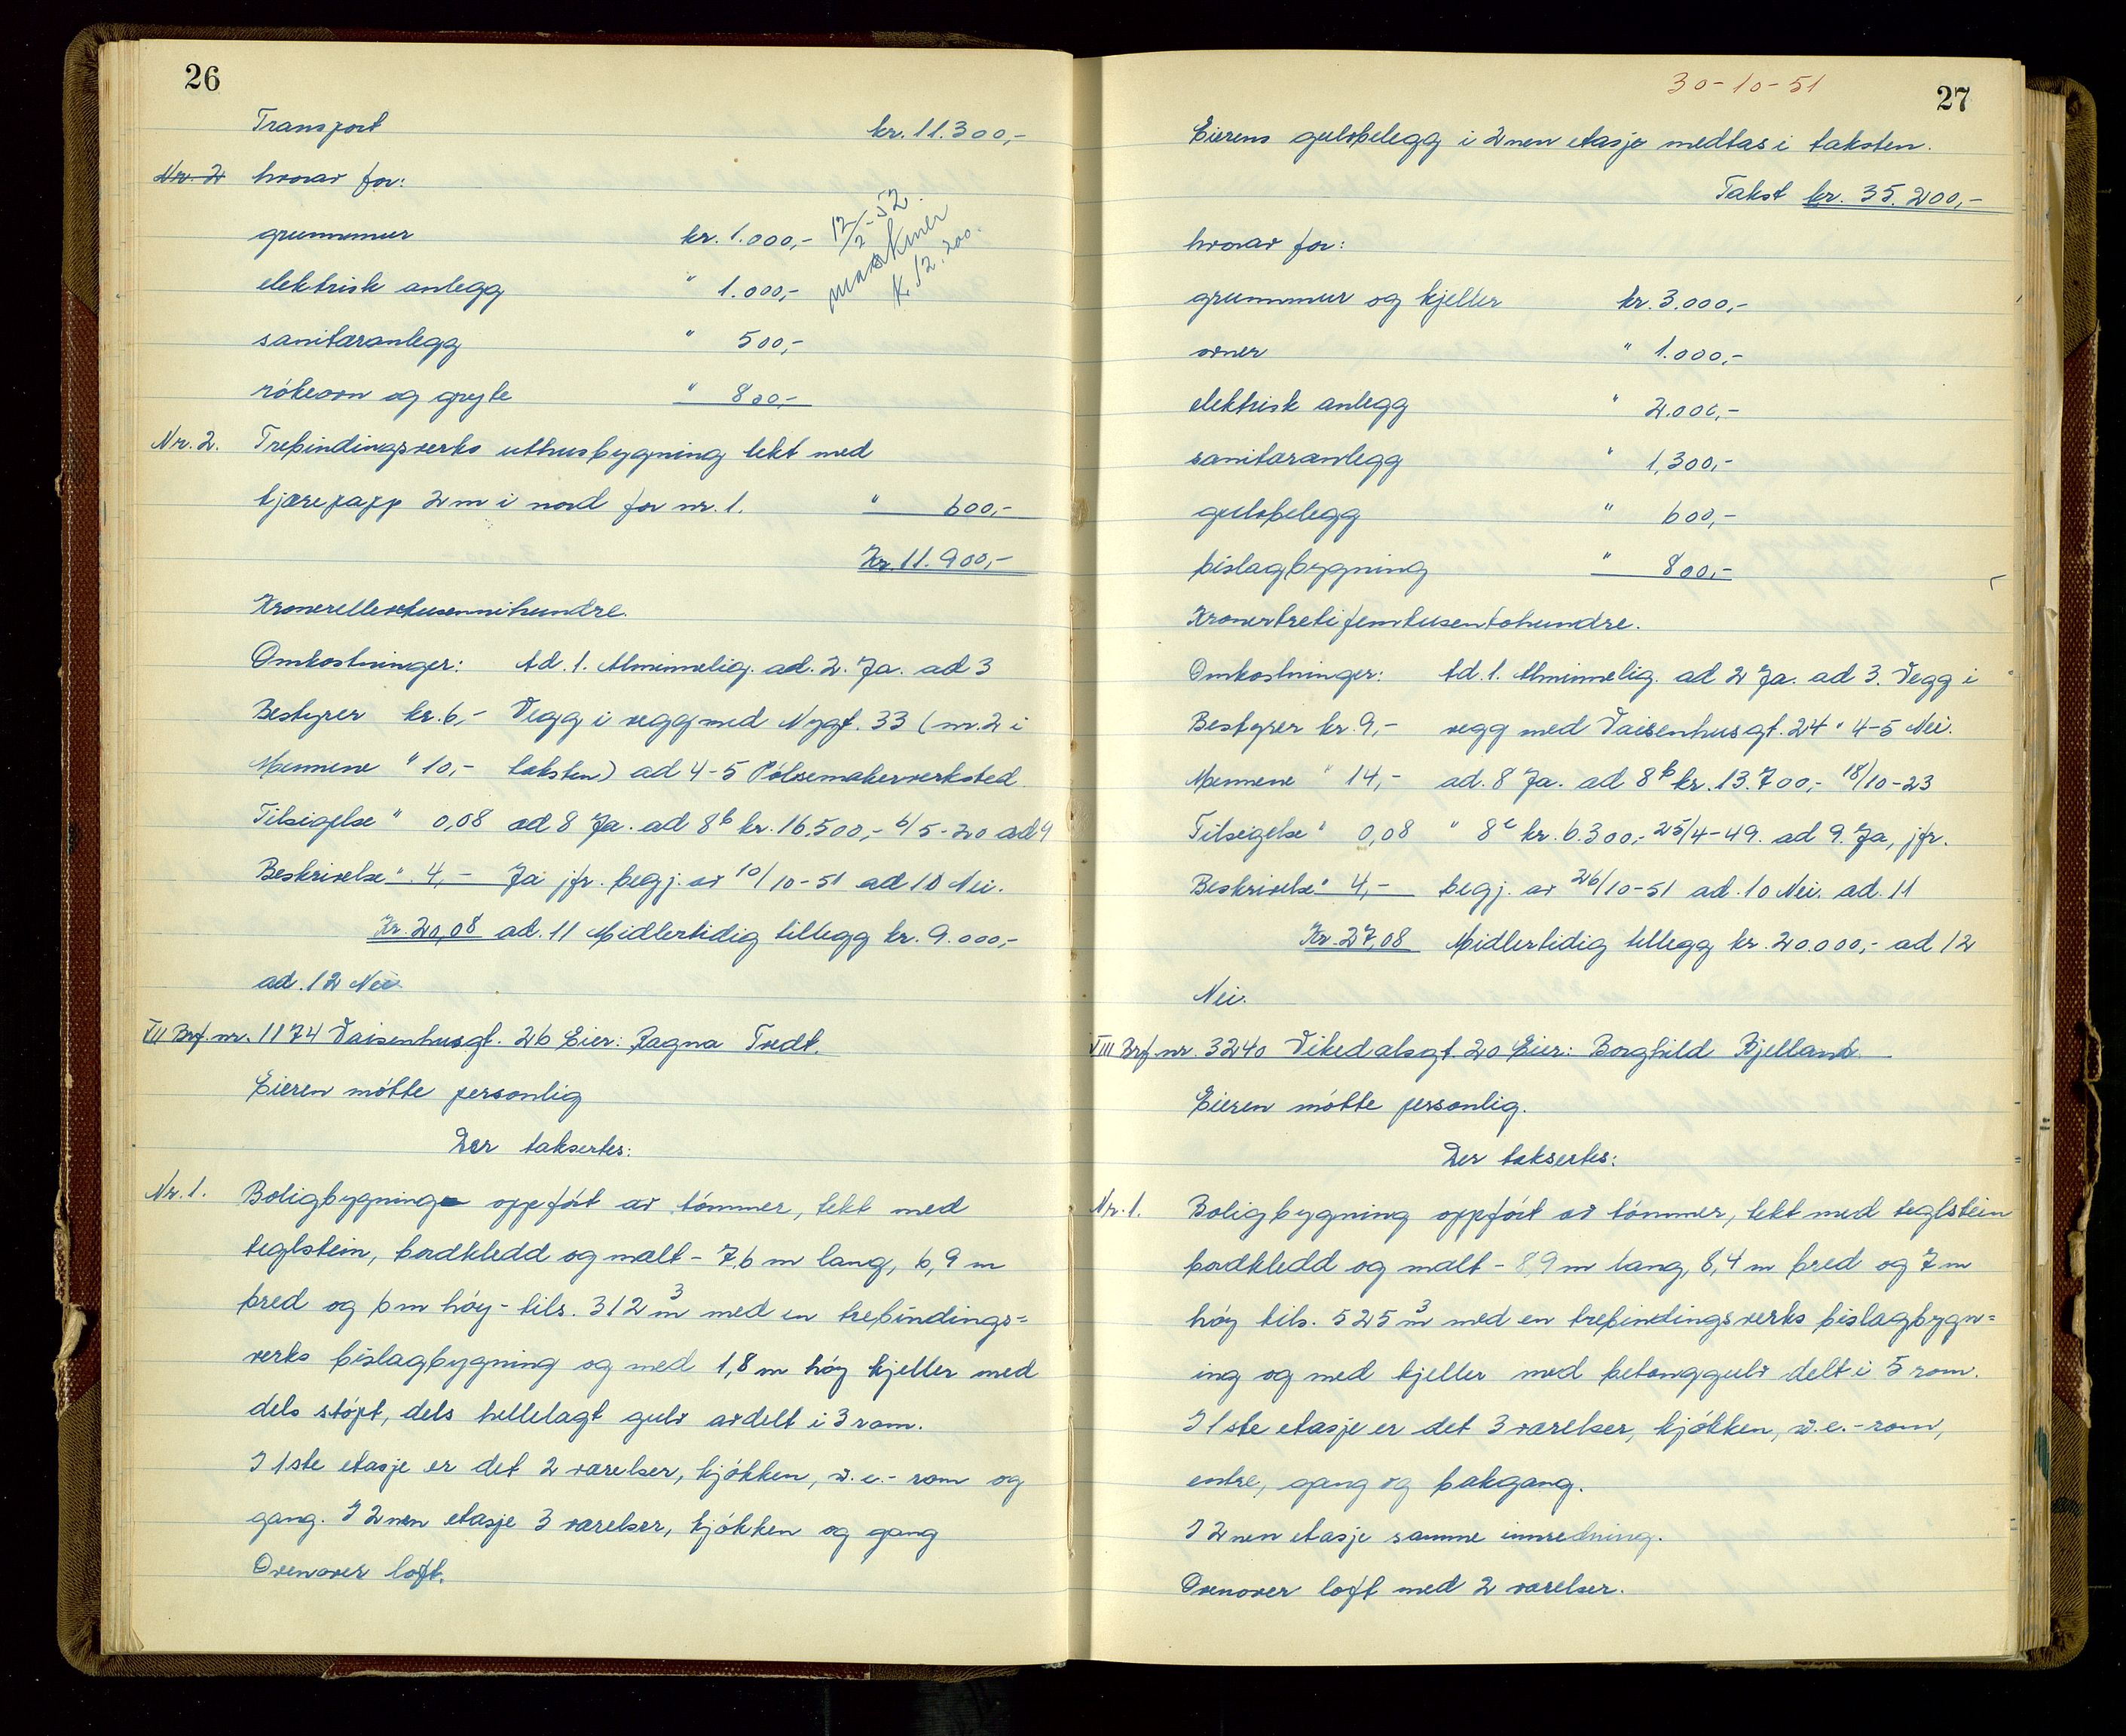 26
Transport kr. 11.300,-
Nr. 2 hvorav for:
grunnmur kr. 1.000,- 12/2-52.
maskiner
k. 12.200.
elektrisk anlegg " 1.000,-
sanitæranlegg " 500,-
rökeovn og gryte " 800,-
Nr. 2. Trebindingsverks uthusbygning tekt med
tjærepapp 2 m i nord for nr. 1. " 600,-
Kr. 11.900,-
Kronerellevetusennihundre.
Omkostninger: Ad. 1. Alminnelig. ad. 2. Ja. ad 3
Bestyrer kr. 6,- Vegg i vegg med Nygt. 33 (nr. 2 i
Mennene " 10,- taksten) ad 4-5 Pölsemakerverksted.
Tilsigelse " 0,08 ad 8 Ja. ad 8b kr. 16.500,- 6/5-20 ad 9
Beskrivelse " 4,- Ja jfr. begj. av 10/10-51 ad 10 Nei.
Kr. 20,08 ad. 11 Midlertidig tillegg kr. 9.000,-
ad. 12 Nei.
VII Brf. nr. 1174 Vaisenhusgt. 26 Eier: Ragna Tvedt.
Eieren mötte personlig
Der taksertes:
Nr. 1. Boligbygning oppfört av tömmer, tekt med
teglstein, bordkledd og malt - 7,6 m lang, 6,9 m
bred og 6 m höy - tils. 312 m3 med en trebindings=
verks bislagbygning og med 1,8 m höy kjeller med
dels stöpt, dels hellelagt gulv avdelt i 3 rom.
I 1ste etasje er det 2 værelser, kjökken, v.c.- rom og
gang. I 2nen etasje 3 værelser, kjökken og gang
Ovenover loft.
30-10-51
27
Eierens gulvbelegg i 2nen etasje medtas i taksten.
Takst kr. 35.200,-
hvorav for:
grunnmur og kjeller kr. 3.000,-
ovner " 1.000,-
elektrisk anlegg " 2.000,-
sanitæranlegg " 1.300,-
gulvbelegg " 600,-
bislagbygning " 800,-
Kronertretifemtusentohundre.
Omkostninger: Ad. 1. Alminnelig. ad 2 Ja. ad 3. Vegg i
Bestyrer kr. 9,- vegg med Vaisenhusgt. 24 " 4-5 Nei.
Mennene " 14,- ad. 8 Ja. ad 8b kr. 13.700,- 18/10-23
Tilseigelse " 0,08 " 8c kr. 6.300,- 25/4-49. ad 9. Ja, jfr.
Beskrivelse " 4,- begj. av 26/10-51 ad. 10 Nei. ad. 11
Kr. 27,08 Midlertidig tillegg kr. 20.000,- ad 12
Nei.
VIII Brf. nr. 3240 Vikedalsgt. 20 Eier: Borghild Bjelland.
Eieren mötte personlig.
Der taksertes:
Nr. 1. Boligbygning oppfört av tömmer, tekt med teglstein
bordkledd og malt - 8,9 m lang, 8,4 m bred og 7 m
höy tils. 525 m3 med en trebindingsverks bislagbygn=
ing og med kjeller med betonggulv delt i 5 rom.
I 1ste etasje er det 3 værelser, kjökken, v.c.- rom,
entre, gang og bakgang.
I 2nen etasje samme innredning.
Ovenover loft med 2 værelser.